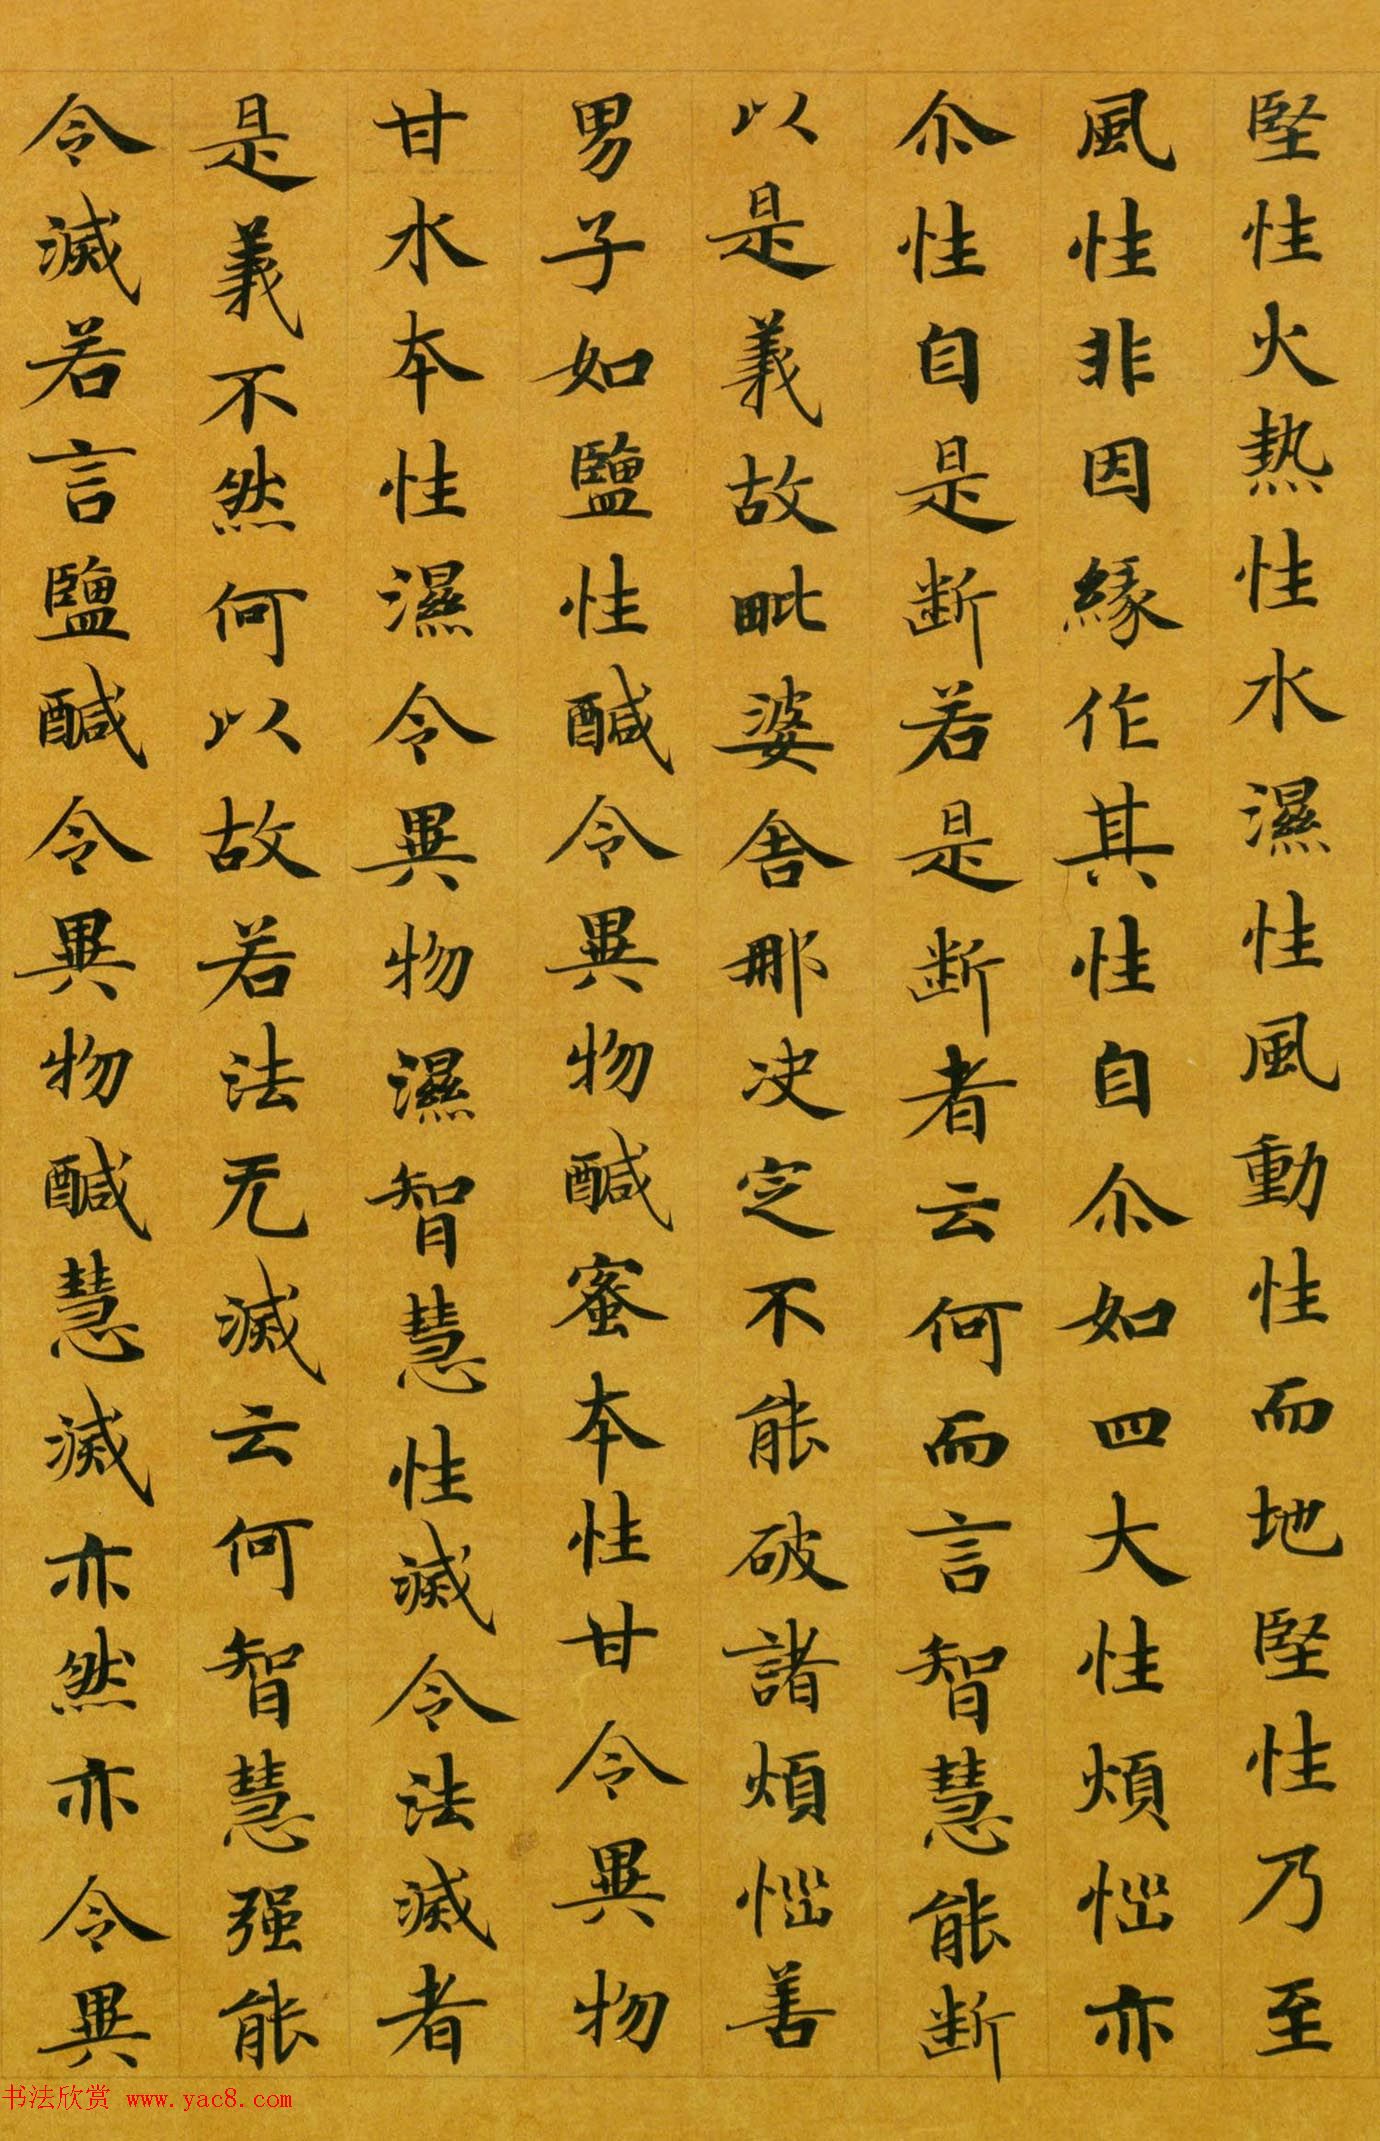 堅性火热性水濕性風動性而地堅性乃至
風性非因緣作其性自尒如四大性煩惱亦
尒性自是断若是断者云何而言智慧能断
以是義故毗婆舍那决定不能破諸煩惱善
男子如鹽性醎令異物醎蜜本性甘令異物
甘水本性濕令異物濕智慧性滅令法滅者
是義不然何以故若法无滅云何智慧强能
令滅若言鹽醎令異物醎慧滅亦然亦令異
书法欣赏 www.yac8.com